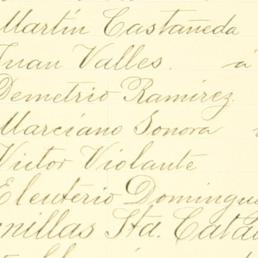 Martín Castañeda
Juan Valles. á
Demetrio Ramirez.
Marciano Sonora
Victor Violante
Eleuterio Domingu
nillas Std. Catá